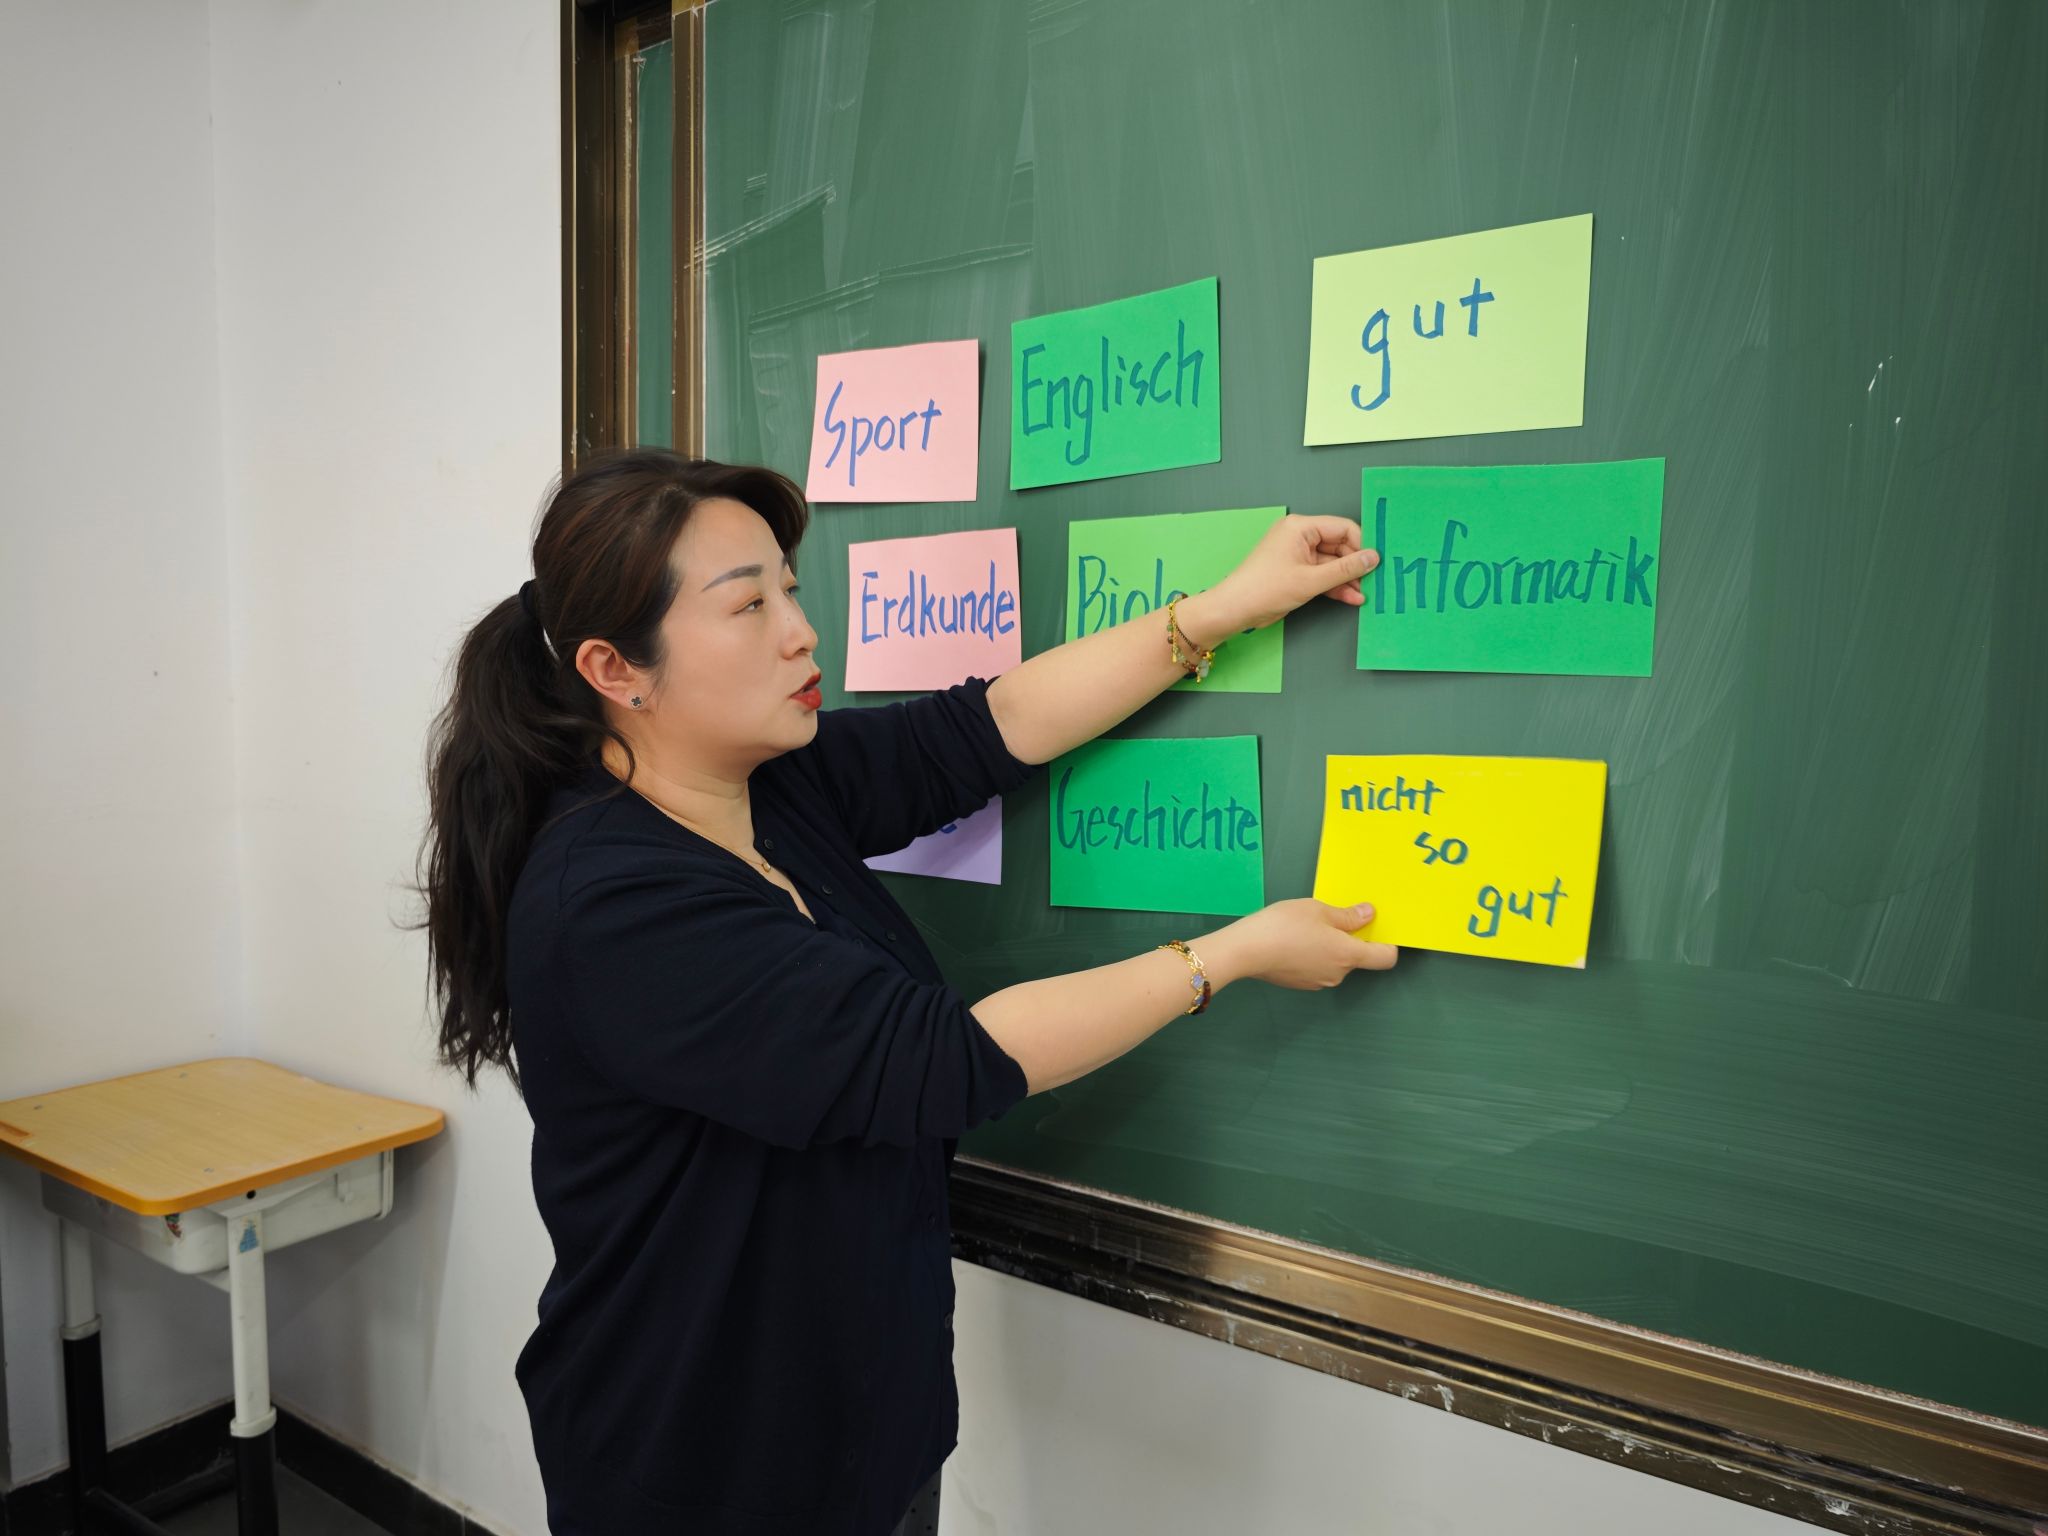 Sport
Englisch
gut
Erdkunde
Informatik
Geschichte
nicht
so
gut